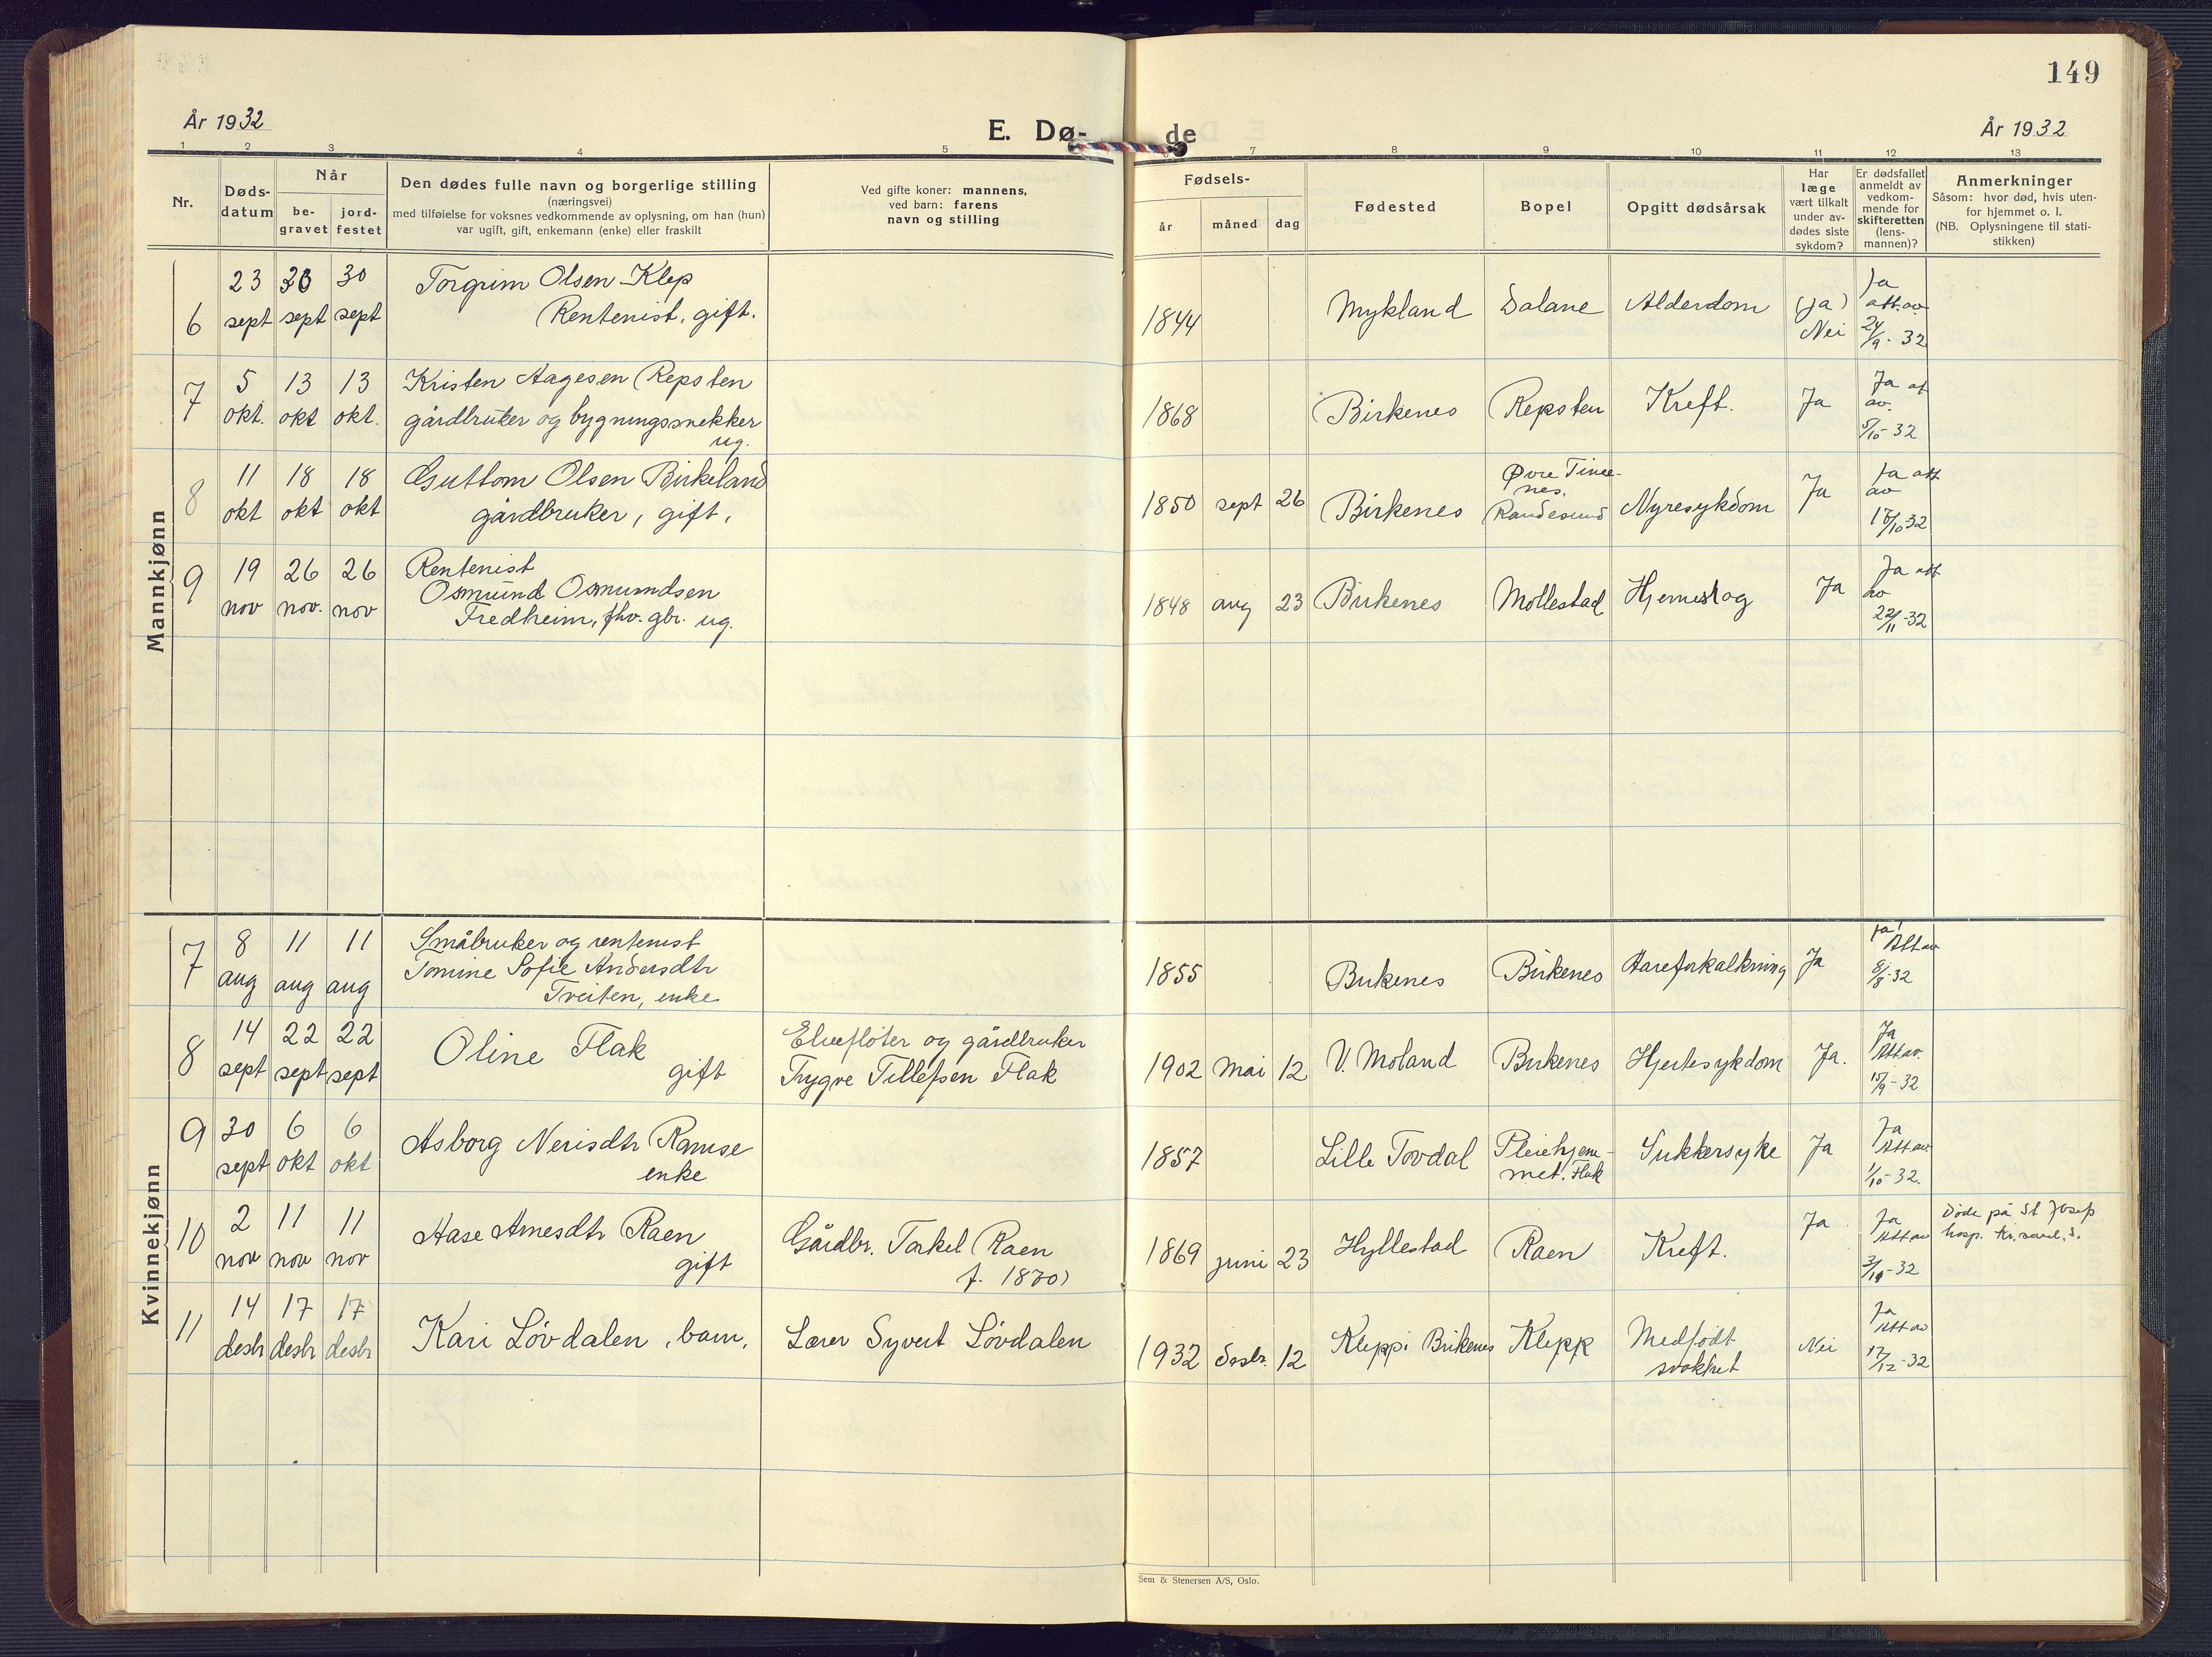 149
År 1932
E. Dø-
de
År 1932
1 2 3 4 5 7 8 9 10 11 12 13
Nr.
Døds-
datum
Når
be-
gravet
jord-
festet
Den dødes fulle navn og borgerlige stilling
(næringsvei)
med tilføielse for voksnes vedkommende av oplysning, om han (hun)
var ugift, gift, enkemann (enke) eller fraskilt
Ved gifte koner: mannens,
ved barn: farens
navn og stilling
Fødsels-
år
måned
dag
Fødested
Bopel
Opgitt dødsårsak
Har
læge
vært tilkalt
under av-
dødes siste
sykdom?
Er dødsfallet
anmeldt av
vedkom-
mende for
skifteretten
(lens-
mannen)?
Anmerkninger
Såsom: hvor død, hvis uten-
for hjemmet o. l.
(NB. Oplysningene til stati-
stikken)
Mannkjønn
6
23
sept
30
sept
30
sept
Torgrim Olsen Klep
Rentenist, gift.
1844
Mykland
Dalane
Alderdom
(ja)
Nei
Ja
att. av.
24/9-32
7
5
okt.
13
okt
13
okt.
Kristen Aagesen Repsten
gårdbruker og bygningssnekker
ug.
1868
Birkenes
Repsten
Kreft.
Ja
Ja at
av.
5/10-32
8
11
okt
18
okt
18
okt
Guttom Olsen Birkeland
gårdbruker, gift,
1850 sept 26
Birkenes
Øvre Time-
nes.
Randesund
Nyresykdom
Ja
Ja att
av
17/10-32
9
19
nov
26
nov.
26
nov
Rentenist
Osmund Osmundsen
Fredheim, fhv. gbr. ug.
1848 aug 23
Birkenes
Mollestad
Hjerneslag
Ja
Ja att
av
22/11-32
Kvinnekjønn
7
8
aug
11
aug
11
aug
Småbruker og rentenist
Tomine Sofie Andersdtr
Tveiten, enke
1855
Birkenes
Birkenes
Aareforkalkning
Ja
ja!
Att av
8/8-32
8
14
sept
22
sept
22
sept
Oline Flak
gift
Elvefløter og gårdbruker
Trygve Tillefsen Flak
1902 mai 12
V. Moland
Birkenes
Hjertesykdom
Ja.
Ja
Att av.
15/9-32
9
30
sept
6
okt
6
okt
Asborg Nerisdtr Ramse
enke
1857
Lille Tovdal
Pleiehjem-
met. Flak
Sukkersyke
Ja
Ja
Att av
1/10-32.
10
2
nov
11
nov
11
nov
Aase Arnesdtr Raen
gift
Gårdbr. Torkel Raen
f. 1870)
1869 juni 23
Hyllestad
Raen
Kreft.
Ja
Ja
Att av
3/11-32
Døde på St Josep
hosp. Kr.sand. S.
11
14
desbr
17
desbr
17
desbr
Kari Løvdalen, barn,
Lærer Syvert Løvdalen
1932 desbr. 12
Klepp i Birkenes
Klepp
Medfødt
svakhet
Nei
Ja
Att av
17/12-32
Sem & Stenersen A/S, Oslo.